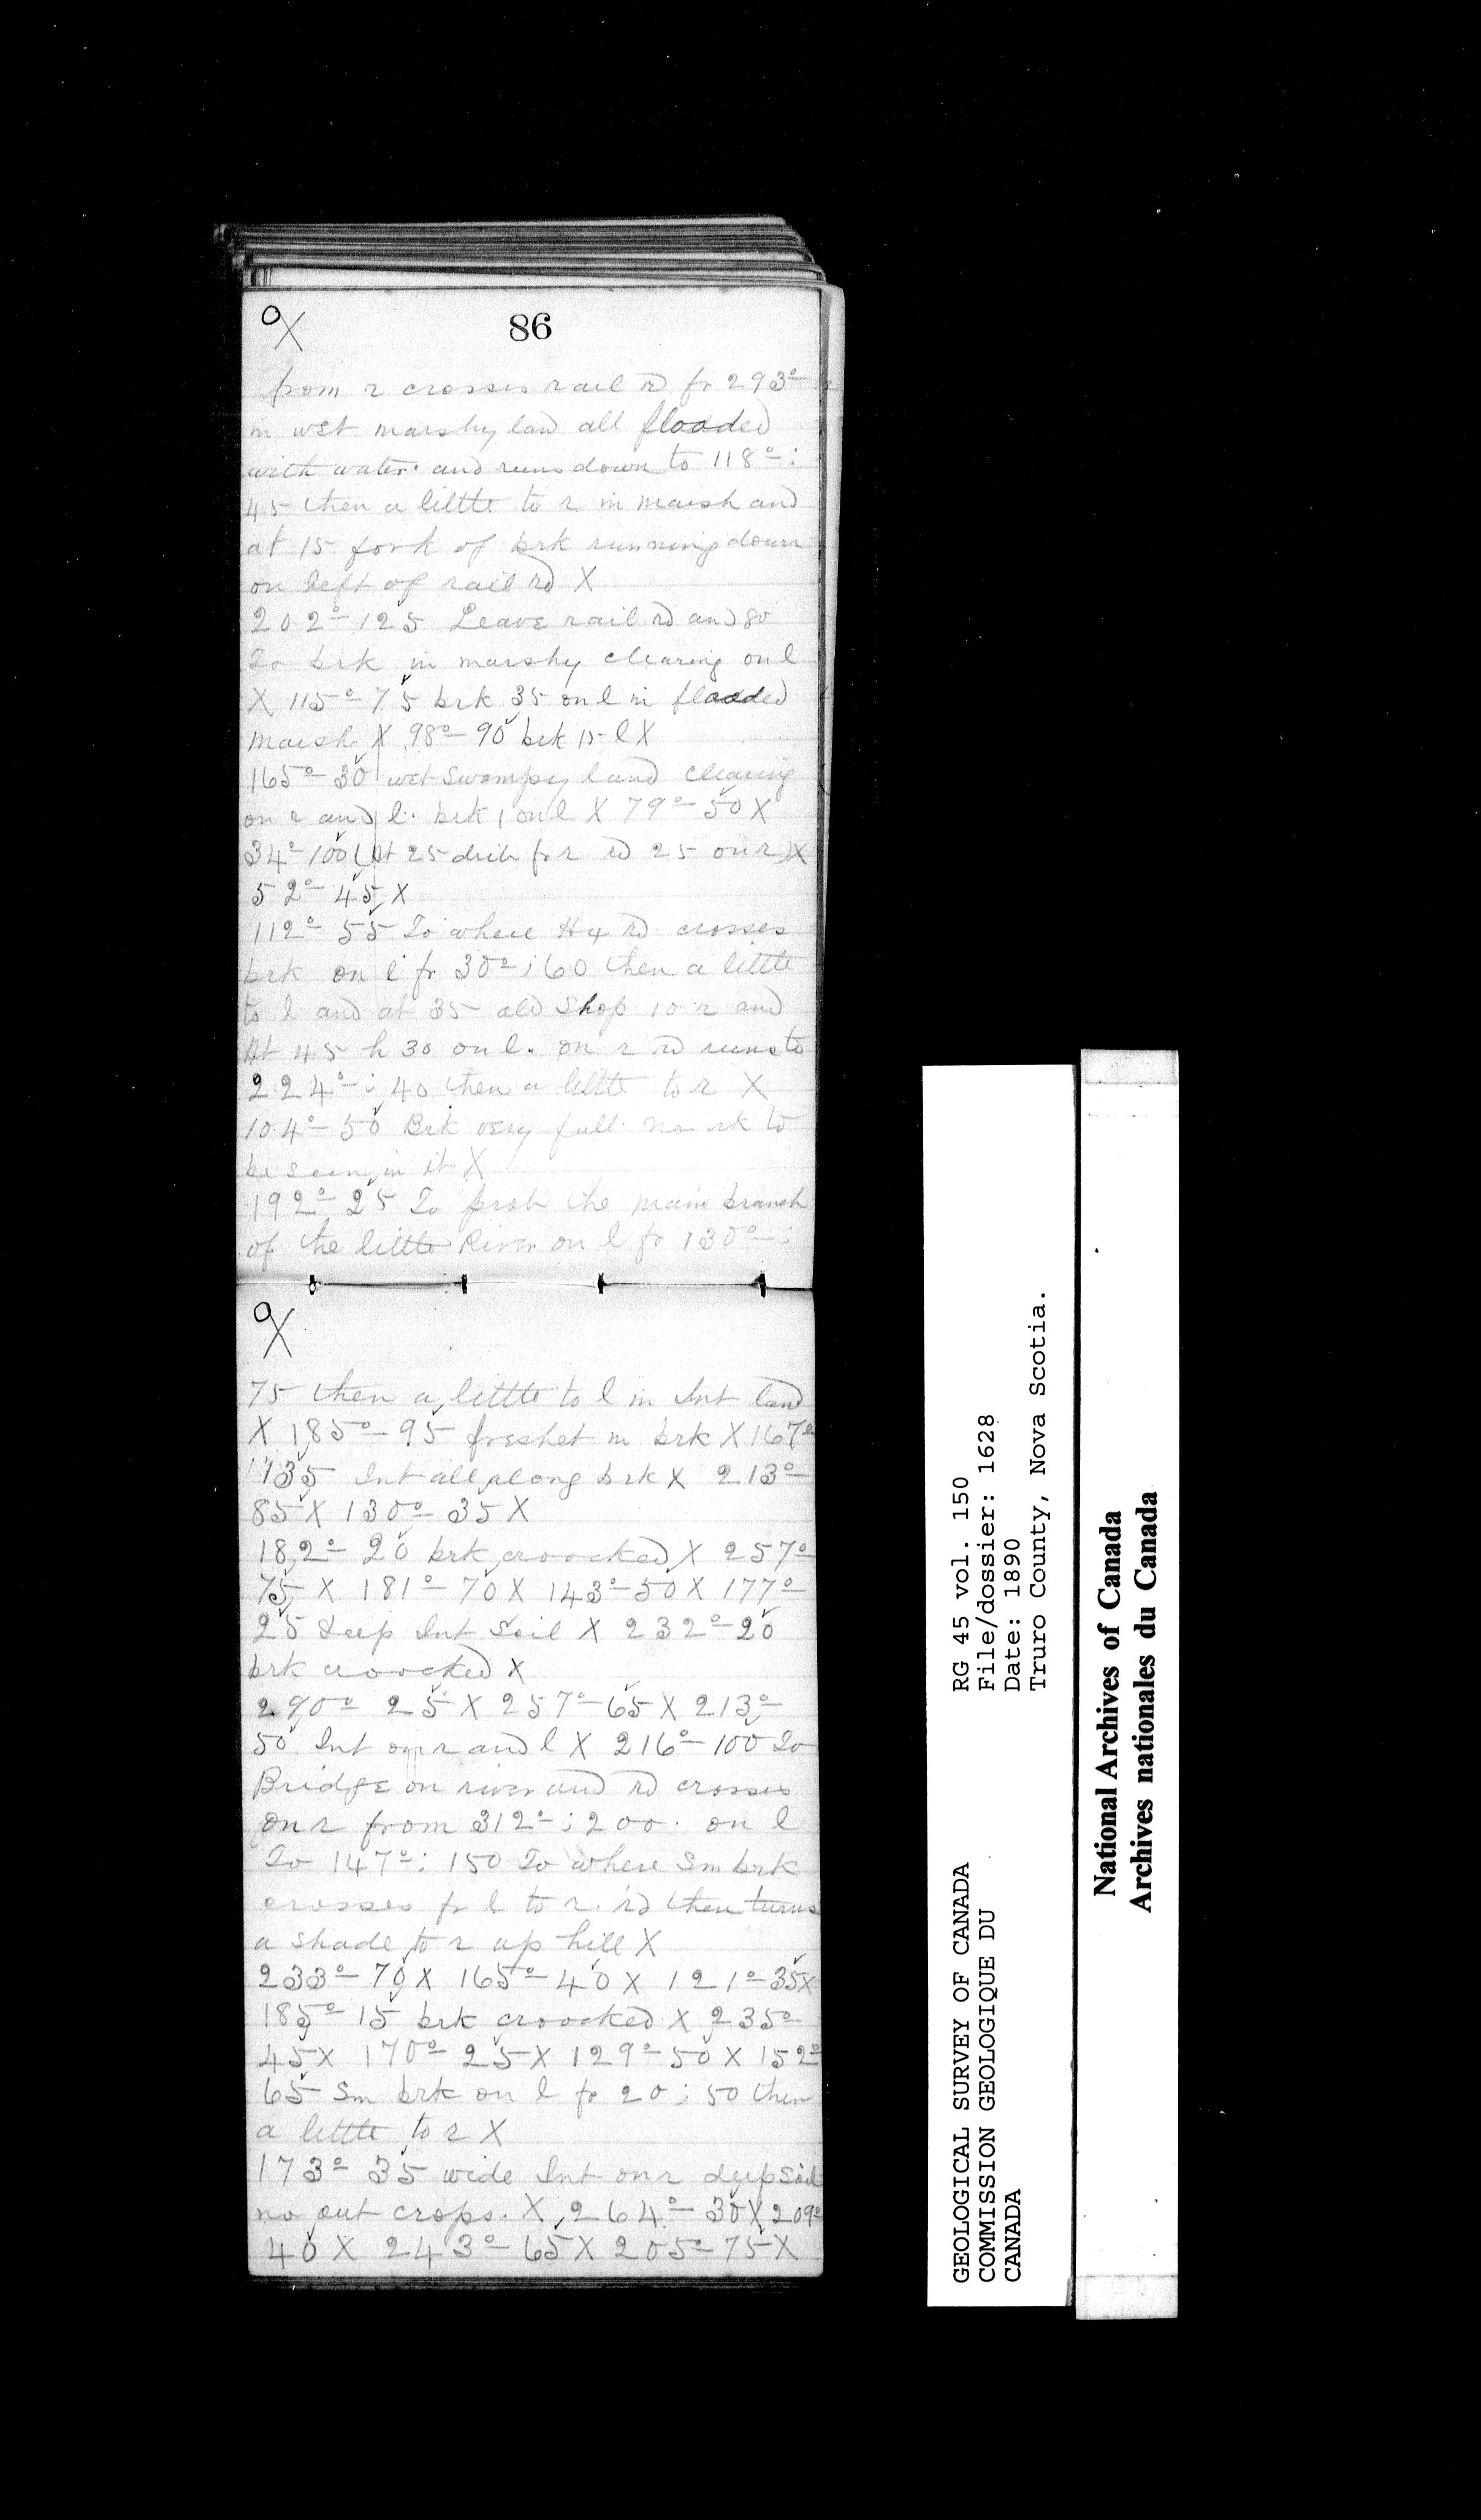 86
from r crosses rail rd fr 293°
in wet marshy land all flooded
with water and runs down to 118°;
45 then a little to r in marsh and
at 15 fork of brk running down
on left of rail rd X
202°- 125 Leave rail rd and go
To brk in marshy clearing on l
X 115°- 75 brk 35 on l in flooded
marsh X 98°- 90 brk 15 l X
165°- 30 wet swampy land clearing
on r and l. brk 1 on l X 79°- 50 X
34°- 100 (At 25 fr r rd 25 on r) X
52°- 45 X
112°- 55 To where rd crosses
brk on l fr 30°; 60 then a little
to l and at 35 old Shop 10 r and
At 45 h 30 on l. on r rd runs to
224°; 40 then a little to r X
104°- 50 Brk very full no rk to
be seen in it X
192°- 25 To prob the main branch
of the little River on l fr 130°;
75 then a little to l in Int land
X 185°- 95 freshet in brk X 167°
135 Int all along brk X 213°-
85 X 130°- 35 X
182°- 20 brk croocked X 257°
75 X 181°- 70 X 143°- 50 X 177°-
25 deep Int Soil X 232°- 20
brk croocked X
290°- 25 X 257°- 65 X 213°-
50 Int on r and l X 216°- 100 To
Bridge on river and rd crosses
on r from 312°; 200. on l
To 147°; 150 To where Sm brk
crosses fr l to r. rd then turns
a shade to r up hill X
233°- 70 X 165°- 40 X 121°- 35 X
185°- 15 brk croocked X 235°
45 X 170°- 25 X 129°- 50 X 152°
65 Sm brk on l fr 20; 50 then
a little to r X
173°- 35 wide Int on r deep soil
no out crops. X 264°- 30 X 209°
40 X 243°- 65 X 205°- 75 X
GEOLOGICAL SURVEY OF CANADA
COMMISSION GEOLOGIQUE DU
CANADA
RG 45 vol. 150
File/dossier: 1628
Date: 1890
Truro County, Nova Scotia.
National Archives of Canada
Archives nationales du Canada